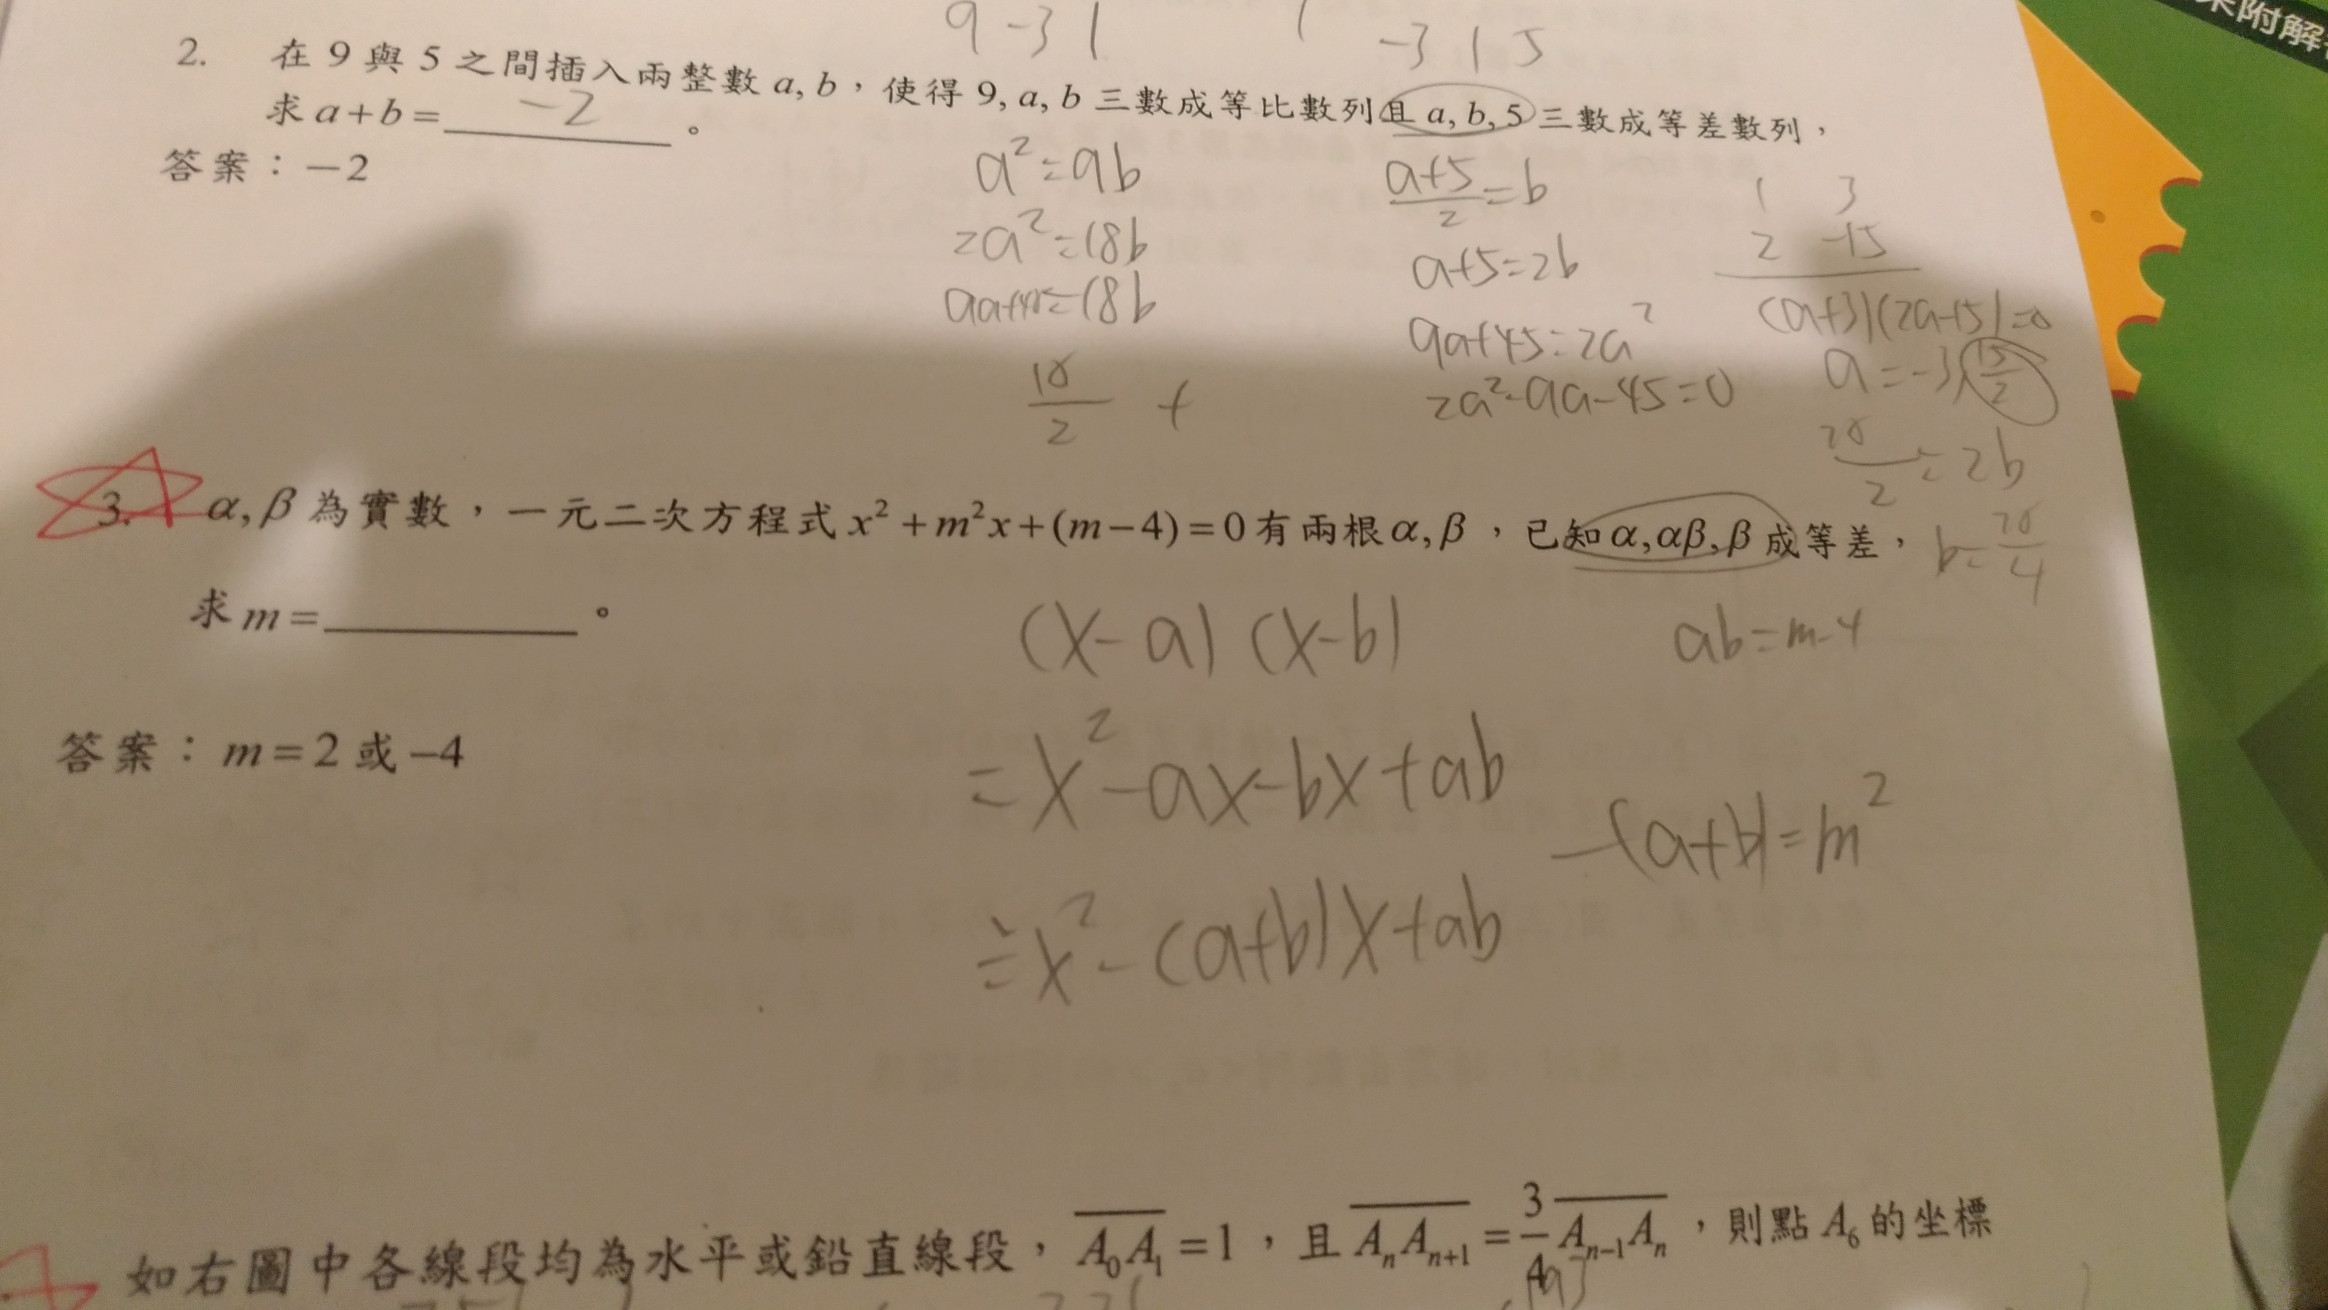 9 -3 1
-3 1 5
2. 在 9 與 5 之間插入兩整數 a, b，使得 9, a, b 三數成等比數列且 a, b, 5 三數成等差數列，
求 a+b= -2 。
答案：－2
a²=9b
2a²=18b
=18b
a+5/2=b
a+5=2b
9a+45=2a²
2a²-9a-45=0
1 3
2 -15
(a+3)(2a-15)=0
a=-3, 15/2
=2b
3. α, β 為實數，一元二次方程式 x²+m²x+(m−4)=0 有兩根 α, β，已知 α, αβ, β 成等差，
求 m= 。
(x-a)(x-b)
ab=m-4
答案：m=2 或 −4
=x²-ax-bx+ab
-(a+b)=m²
=x²-(a+b)x+ab
如右圖中各線段均為水平或鉛直線段，A₀A₁=1，且 AₙAₙ₊₁=3/4 Aₙ₋₁Aₙ，則點 A₆ 的坐標
附解